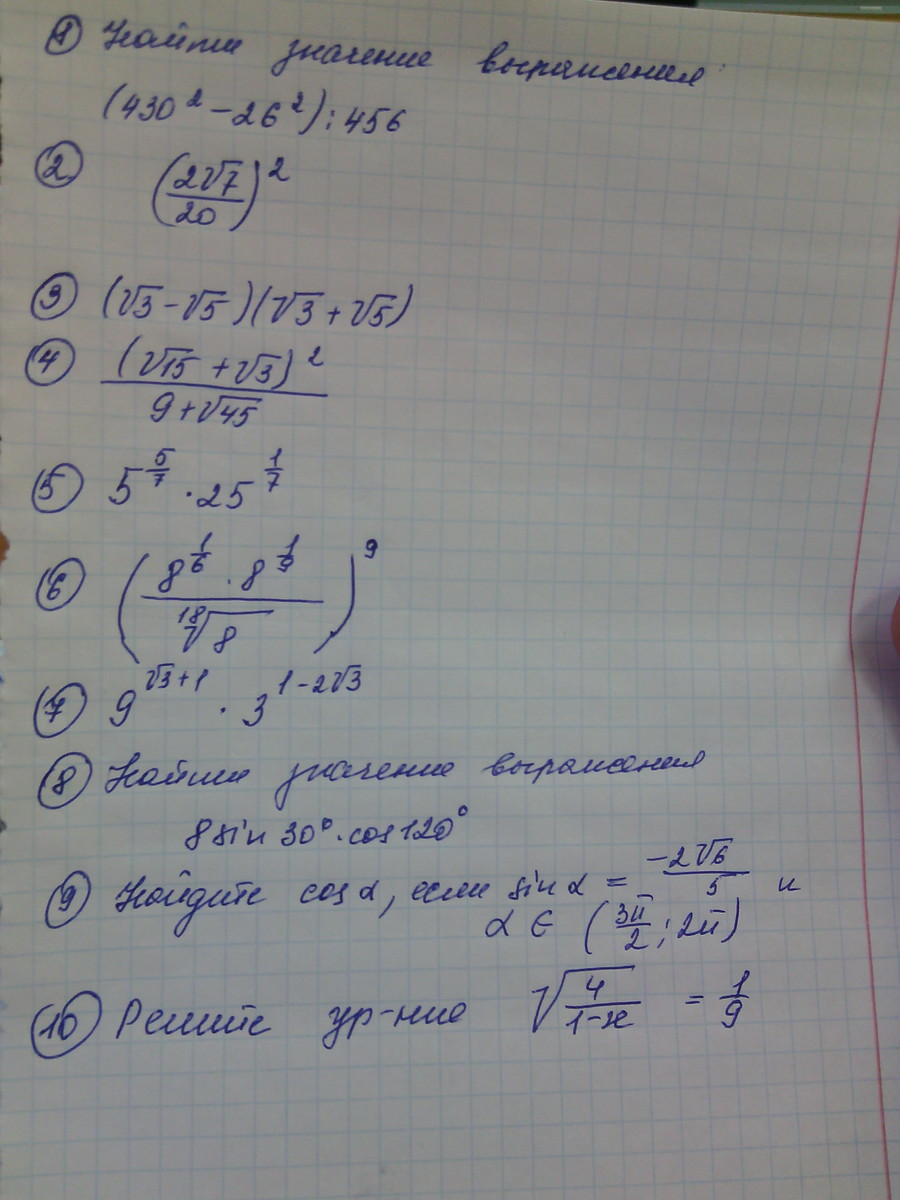 ① Найти значение выражения
(430² – 26²) : 456
② (2√7/20)²
③ (√3 – √5)(√3 + √5)
④ (√15 + √3)²/(9 + √45)
⑤ 5^(5/7) · 25^(1/7)
⑥ ((8^(1/6) · 8^(1/9))/¹⁸√8)⁹
⑦ 9^(√3+1) · 3^(1–2√3)
⑧ Найти значение выражения
8 sin 30° · cos 120°
⑨ Найдите cos α, если sin α = –2√6/5 и
α ∈ (3π/2; 2π)
⑩ Решите ур-ние √(4/(1–x)) = 1/9